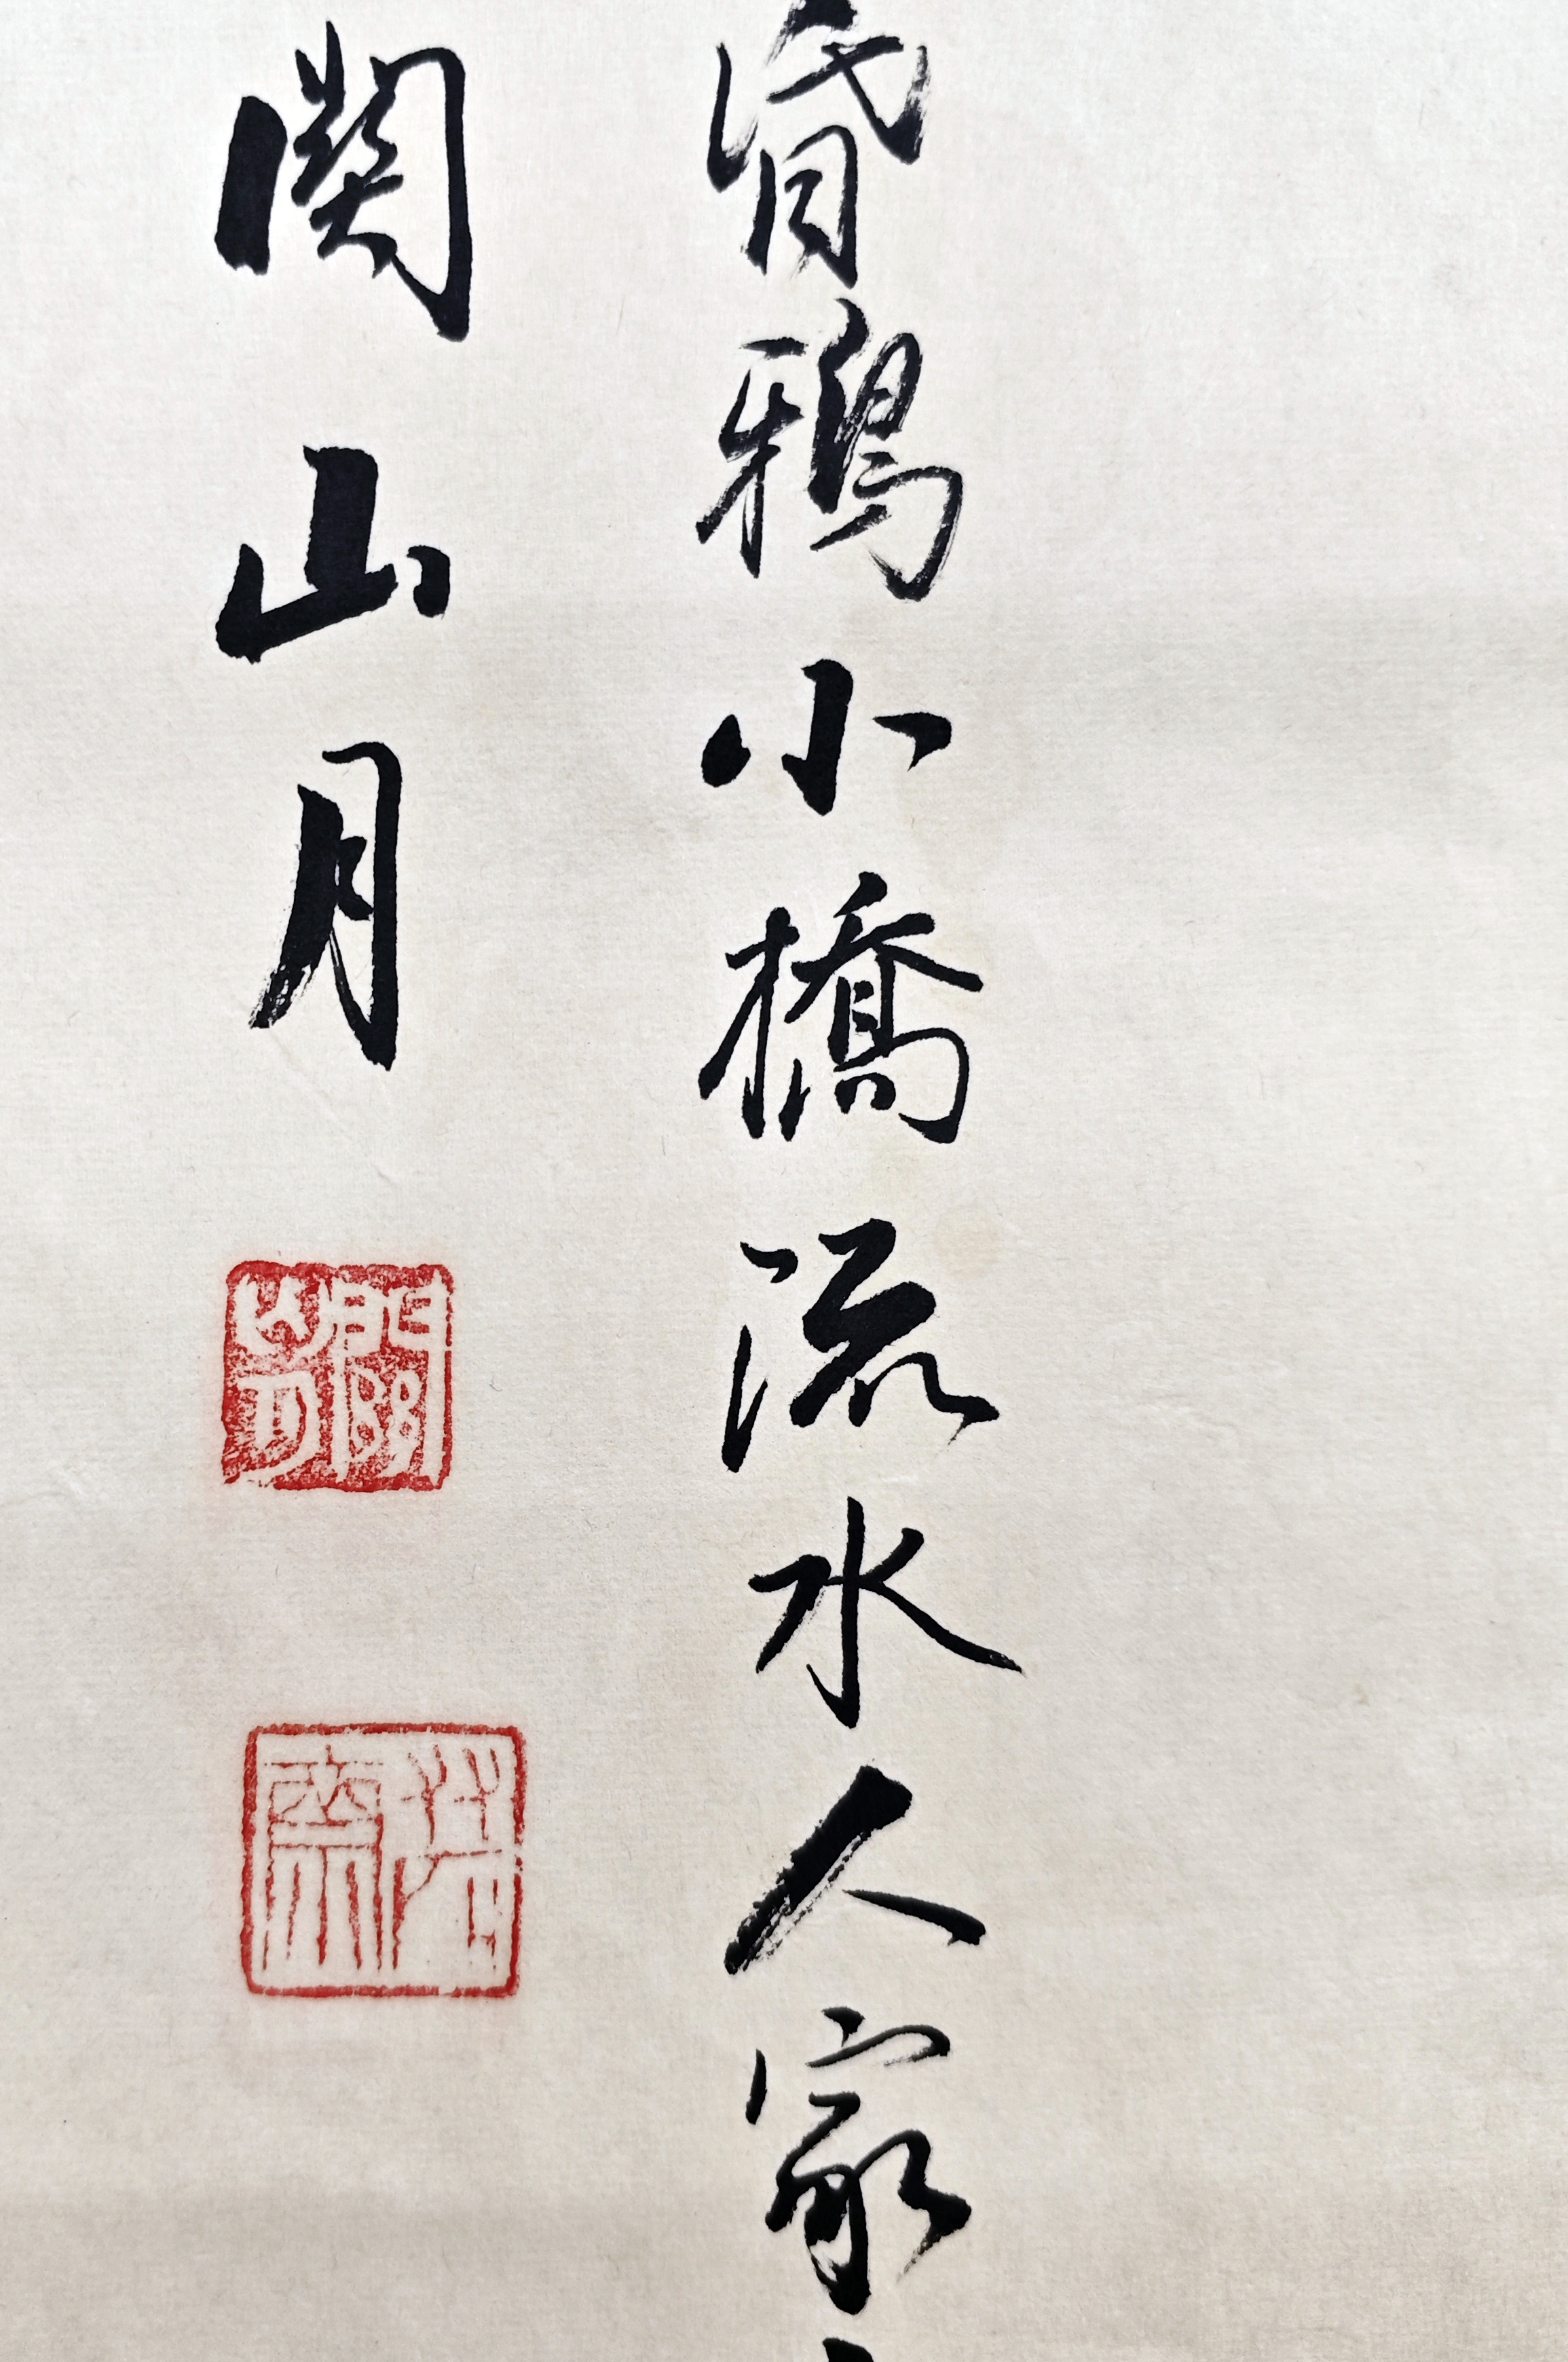 昏鴉小橋流水人家
關山月
關山月